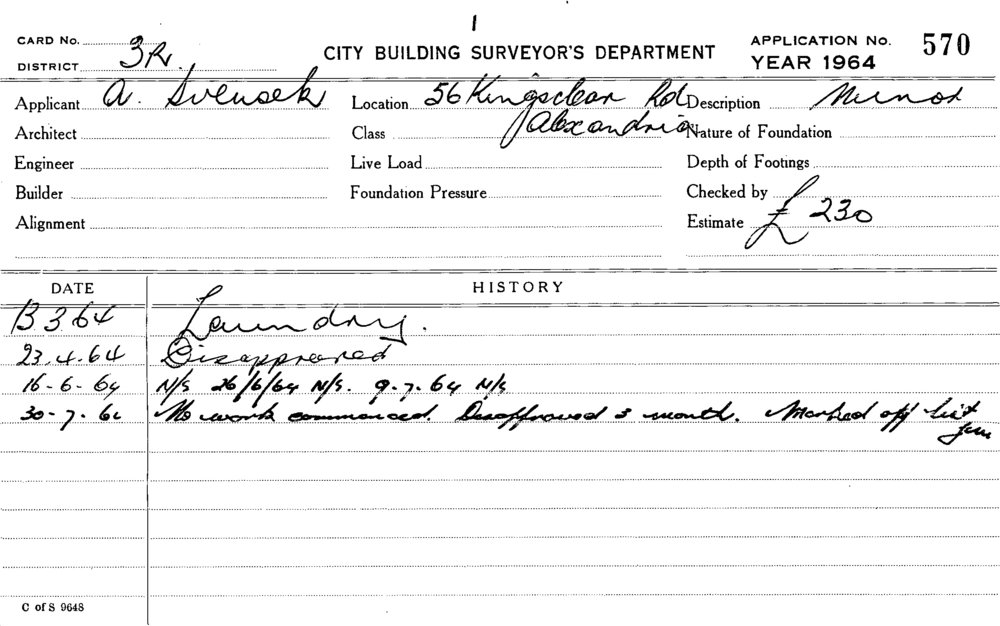 1
CARD No.
DISTRICT 3R.
CITY BUILDING SURVEYOR'S DEPARTMENT
APPLICATION No. 570
YEAR 1964
Applicant A. Svensek Location 56 Kingsclear Rd Description Minor
Architect Class Alexandria Nature of Foundation
Engineer Live Load Depth of Footings
Builder Foundation Pressure Checked by
Alignment Estimate £ 230
DATE HISTORY
13.3.64 Laundry.
23.4.64 Disapproved
16-6-64 N/S 26/6/64 N/S. 9-7.64 N/S
30-7.64 No work commenced. Disapproved 3 month. Marked off list
C of S 9648